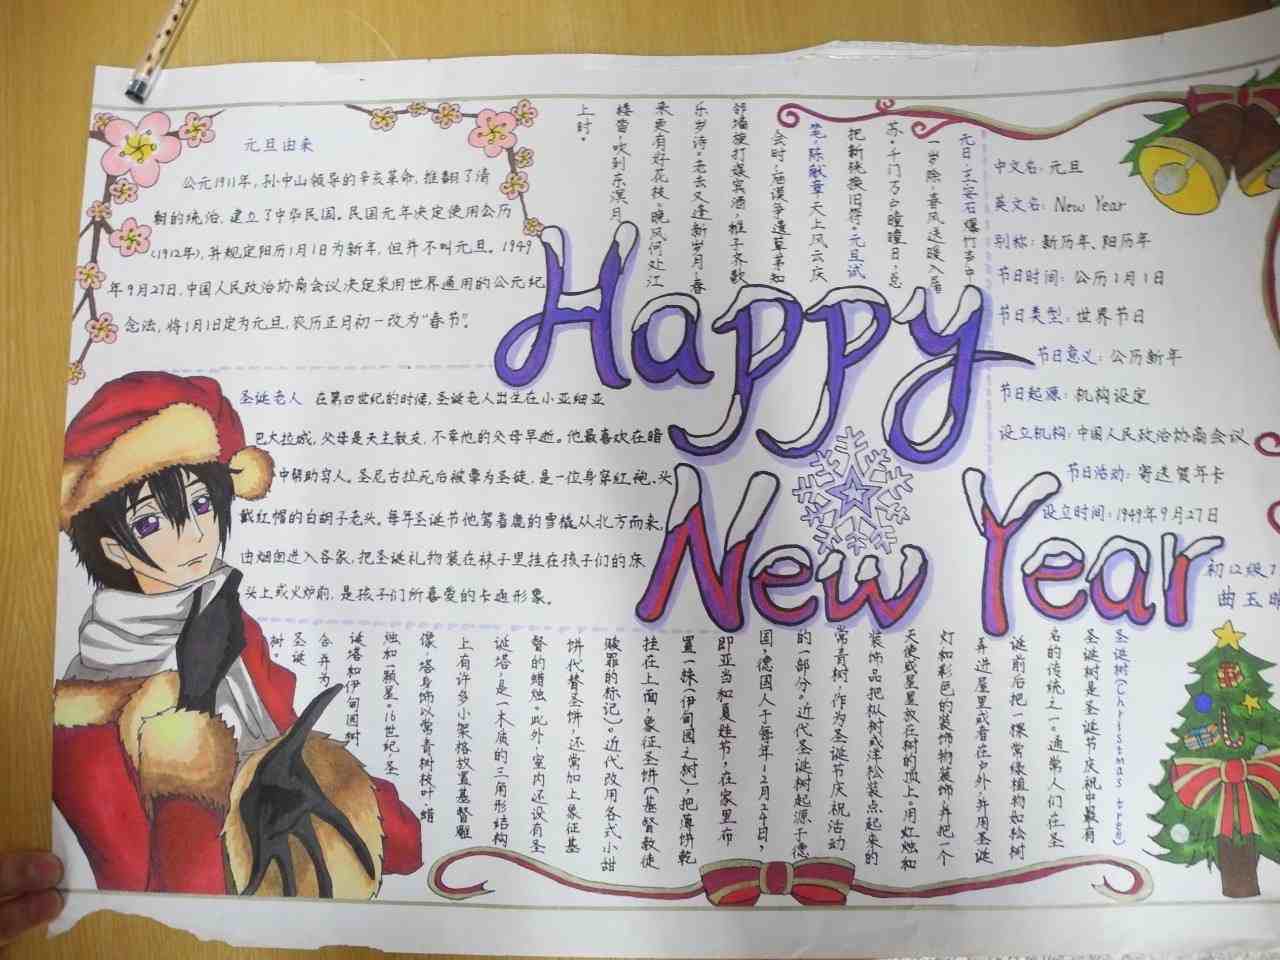 元旦由来
公元1911年,孙中山领导的辛亥革命,推翻了清
朝的统治,建立了中华民国。民国元年决定使用公历
(1912年),并规定阳历1月1日为新年,但并不叫元旦。1949
年9月27日,中国人民政治协商会议决定采用世界通用的公元纪
念法,将1月1日定为元旦,农历正月初一改为“春节”。
元日·王安石爆竹声中
一岁除,春风送暖入屠
苏。千门万户曈曈日,总
把新桃换旧符。元旦试
笔·陈献章·天上风云庆
会时,庙谟争遣草茅知
邻墙旋打娱宾酒,稚子齐歌
乐岁诗。老去又逢新岁月,春
来更有好花枝。晚风何处江
楼笛,吹到东溟月
上时。
中文名:元旦
英文名:New Year
别称:新历年、阳历年
节日时间:公历1月1日
节日类型:世界节日
节日意义:公历新年
节日起源:机构设定
设立机构:中国人民政治协商会议
节日活动:寄送贺年卡
设立时间:1949年9月27日
Happy
New Year
初12级7
曲玉
圣诞老人 在第四世纪的时候,圣诞老人出生在小亚细亚
巴大拉城,父母是天主教友,不幸他的父母早逝。他最喜欢在暗
中帮助穷人。圣尼古拉死后被尊为圣徒,是一位身穿红袍、头
戴红帽的白胡子老头。每年圣诞节他驾着鹿的雪橇从北方而来,
由烟囱进入各家,把圣诞礼物装在袜子里挂在孩子们的床
头上或火炉前,是孩子们所喜爱的卡通形象。
圣诞树(Christmas tree)
圣诞树是圣诞节庆祝中最有
名的传统之一。通常人们在圣
诞前后把一棵常绿植物如松树
弄进屋里或者在户外,并用圣诞
灯和彩色的装饰物装饰,并把一个
天使或星星放在树的顶上。用灯烛和
装饰品把枞树或洋松装点起来的
常青树,作为圣诞节庆祝活动
的一部分。近代圣诞树起源于德
国,德国人于每年12月24日,
即亚当和夏娃节,在家里布
置一株(伊甸园之树),把薄饼乾
挂在上面,象征圣饼(基督教徒
赎罪的标记)。近代改用各式小甜
饼代替圣饼,还常加上象征基
督的蜡烛。此外,室内还设有圣
诞塔,是一木质的三角形结构
上有许多小架格放置基督雕
像,塔身饰以常青树枝叶、蜡
烛和一颗星。16世纪,圣
诞塔和伊甸园树
合并为
圣诞
树。